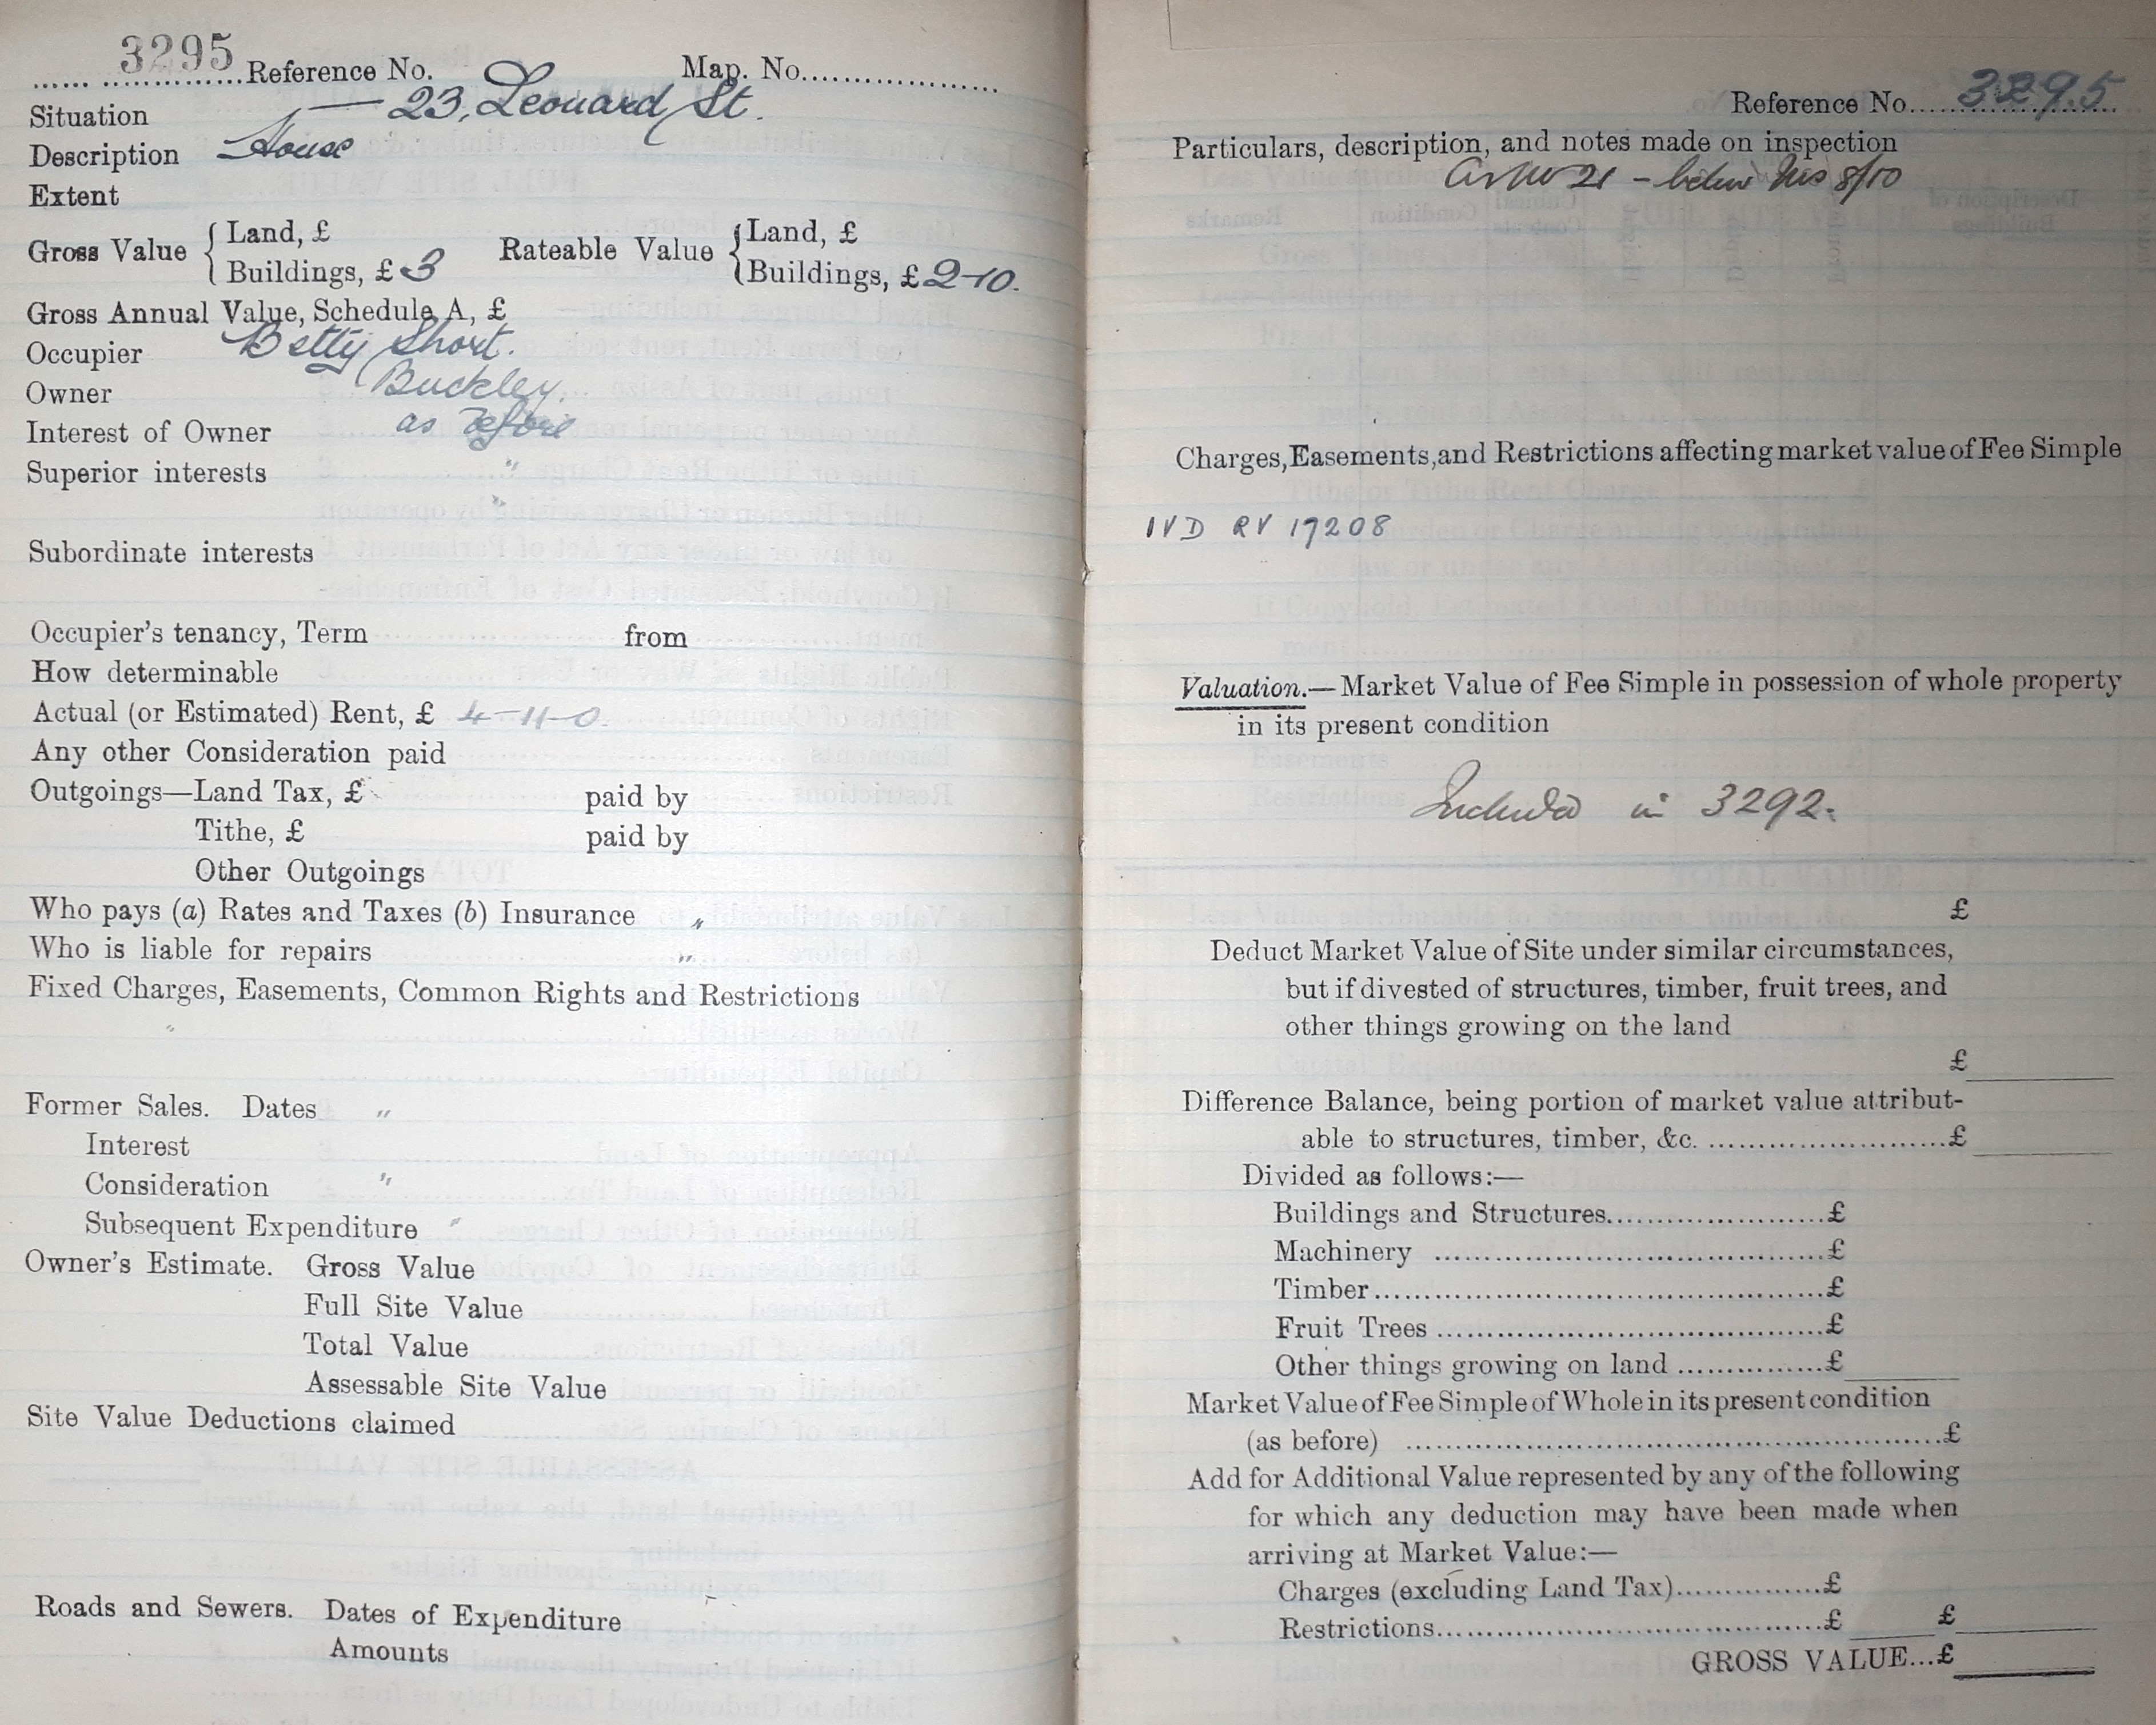 3295 Reference No. Map. No.
Situation — 23, Leonard St.
Description House
Extent
Gross Value { Land, £ Rateable Value { Land, £
Buildings, £ 3 Buildings, £ 2-10.
Gross Annual Value, Schedule A, £
Occupier Betty Short.
Owner Buckley.
Interest of Owner as before
Superior interests "
"
Subordinate interests
Occupier's tenancy, Term from
How determinable
Actual (or Estimated) Rent, £ 4-11-0.
Any other Consideration paid
Outgoings—Land Tax, £ paid by
Tithe, £ paid by
Other Outgoings
Who pays (a) Rates and Taxes (b) Insurance "
Who is liable for repairs "
Fixed Charges, Easements, Common Rights and Restrictions
"
Former Sales. Dates "
Interest
Consideration "
Subsequent Expenditure "
Owner's Estimate. Gross Value
Full Site Value
Total Value
Assessable Site Value
Site Value Deductions claimed
Roads and Sewers. Dates of Expenditure
Amounts
Reference No. 3295
Particulars, description, and notes made on inspection
21 - 8/10
Charges, Easements, and Restrictions affecting market value of Fee Simple
IVD RV 17208
Valuation.—Market Value of Fee Simple in possession of whole property
in its present condition
Included in 3292.
£
Deduct Market Value of Site under similar circumstances,
but if divested of structures, timber, fruit trees, and
other things growing on the land
£
Difference Balance, being portion of market value attribut-
able to structures, timber, &c. £
Divided as follows:—
Buildings and Structures £
Machinery £
Timber £
Fruit Trees £
Other things growing on land £
Market Value of Fee Simple of Whole in its present condition
(as before) £
Add for Additional Value represented by any of the following
for which any deduction may have been made when
arriving at Market Value:—
Charges (excluding Land Tax) £
Restrictions £ £
GROSS VALUE...£